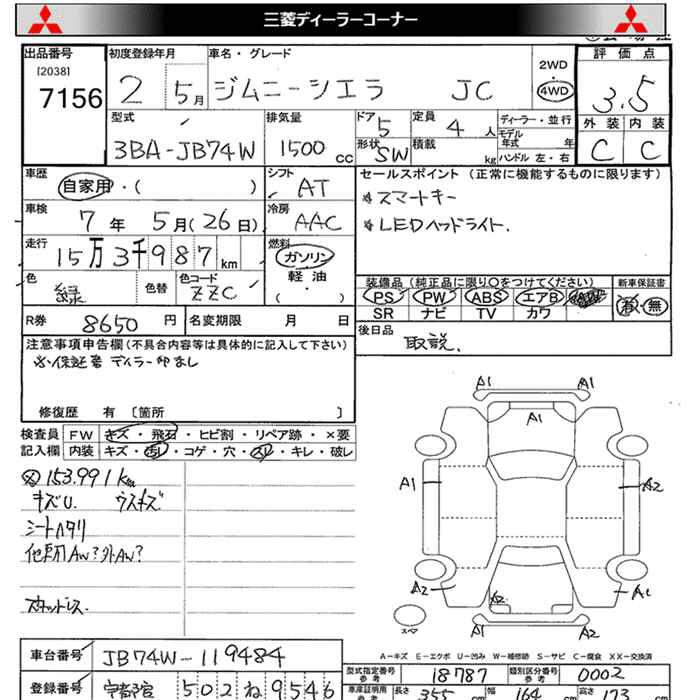 三菱ディーラーコーナー
出品番号 初度登録年月 車名・グレード 2WD 評価点
[2038] 7156 2 5月 ジムニーシエラ JC 4WD 3.5
型式 排気量 ドア 5 定員 4人 ディーラー・並行 外装 内装
3BA-JB74W 1500cc 形状 SW 積載 kg モデル年式 年 ハンドル 左・右 C C
車歴 シフト セールスポイント (正常に機能するものに限ります)
自家用・( ) AT ＊スマートキー
車検 冷房 ＊LEDヘッドライト.
7年 5月(26日) AAC
走行 燃料
15万3千987km ガソリン
軽油・
( )
色 色替 色コード 装備品(純正品に限り○をつけてください) 新車保証書
緑 ZZC PS PW ABS エアB AW 有・無
SR ナビ TV カワ
R券 8650円 名変期限 月 日 後日品
取説.
注意事項申告欄(不具合内容等は具体的に記入して下さい)
※保証書 ディラー印なし
修復歴 有 〔箇所 〕
検査員 FW キズ・飛石・ヒビ割・リペア跡・×要
記入欄 内装 キズ・汚レ・コゲ・穴・スレ・キレ・破レ
153.991km
キズU. ウスキズ
シートハタリ
他車用AW?外AW?
スタッドレス.
A1 A1
A1
A1 A2
A2 A2
A1 A1
スペア
A-キズ E-エクボ U-凹み W-補修跡 S-サビ C-腐食 XX-交換済
車台番号 JB74W-119484
型式指定番号 参考 18787 類別区分番号 参考 0002
登録番号 宇都宮 502ね9546
車庫証明用 参考 長さ 355cm 幅 164cm 高さ 173cm